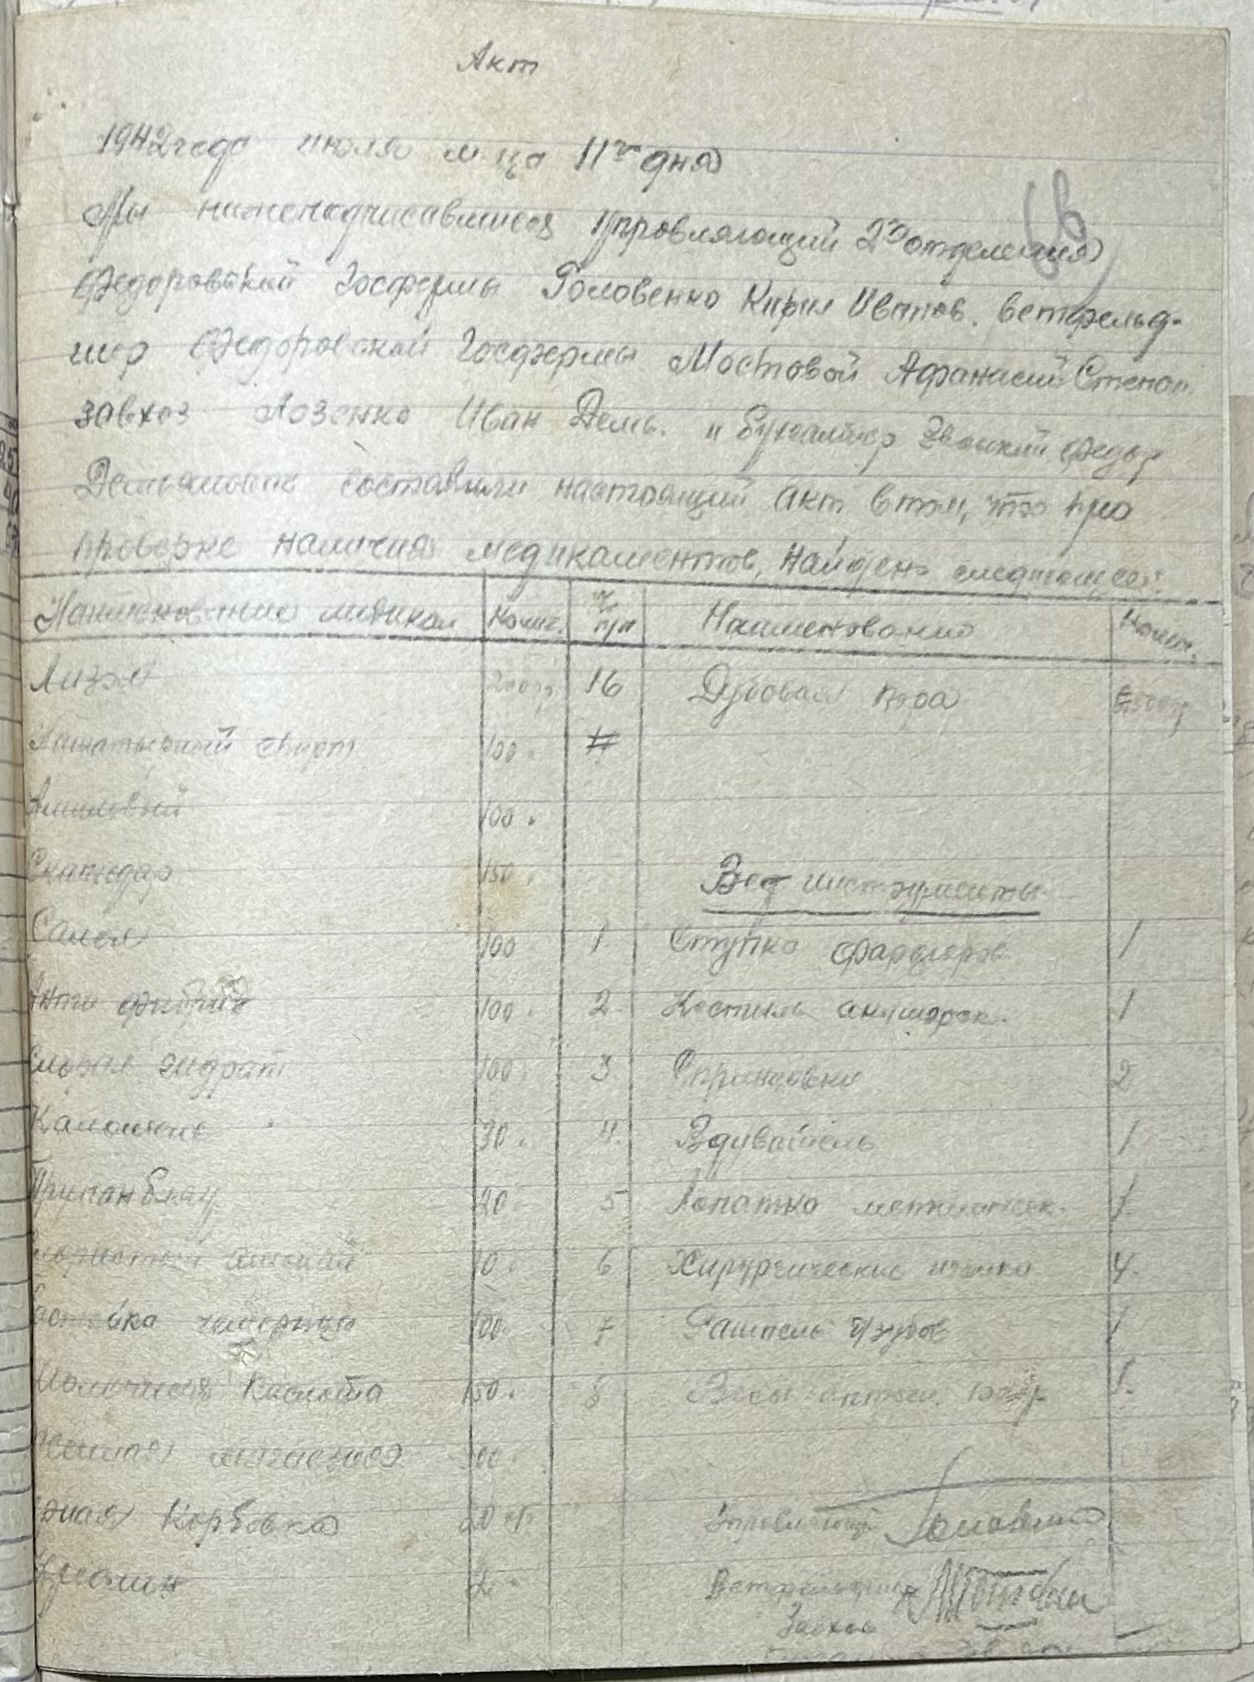 Акт
1942 года июля м-ца 11го дня
Мы нижеподписавшиеся Управляющий 2го отделения
Федоровской Госфермы Головенко Кирил Иванов. ветфельд-
шер Федоровской Госфермы Мостовой Афанасий Степан.
завхоз Лозенко Иван Демь. и бухгалтер Федор
Демьянович составили настоящий акт в том, что при
проверке наличия медикаментов, найдено следующее:
Наименование медикам. Колич. № п/п Наименование Колич.
Лизол 200гр. 16 Дубовая кора
Нашатырный спирт 100
100
Скапидар 150 Вет инструменты
Салол 100 1 Ступка фарфоров. 1
Анти фибрин 100 2 Костыль акушерск. 1
гидрат 100 3 Спринцовки 2
Каломель 30 4 Вдуватель 1
Трипанблау 20 5 Лопатка 1
10 6 Хирургические иголки 4
чемерицы 100 7 Рашпель д/зубов 1
Молочная кислота 150 8 Весы аптечн. 1
300
Карбовка Управляющий Головенко
Креолин 2 Ветфельдшер Мостовой
Завхоз